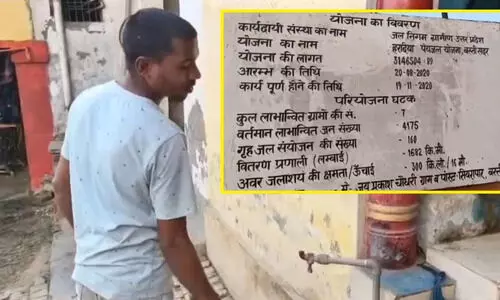 योजना का विवरण
कार्यदायी संस्था का नाम - जल निगम ग्रामीण उत्तर प्रदेश
योजना का नाम - हरदिया पेयजल योजना, बस्ती सदर
योजना की लागत - 3146504.89
आरम्भ की तिथि - 20-08-2020
कार्य पूर्ण होने की तिथि - 19-11-2020
परियोजना घटक
कुल लाभान्वित ग्रामों की सं. - 7
वर्तमान लाभान्वित जन संख्या - 4175
गृह जल संयोजन की संख्या - 160
वितरण प्रणाली (लम्बाई) - 1602 कि.मी.
अवर जलाशय की क्षमता/ऊँचाई - 300 कि.ली./16 मी.
मे. जय प्रकाश चौधरी ग्राम व पोस्ट